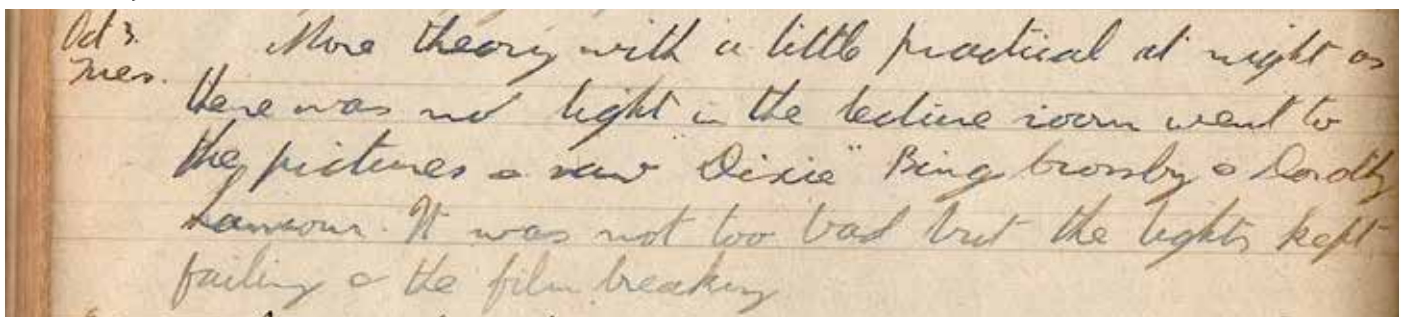 Oct 3. More theory with a little practical at night as
Tues. there was no light in the lecture room went to
the pictures & saw "Dixie" Bing Crossby & Dorothy
Lamour. It was not too bad but the lights kept
failing & the film breaking